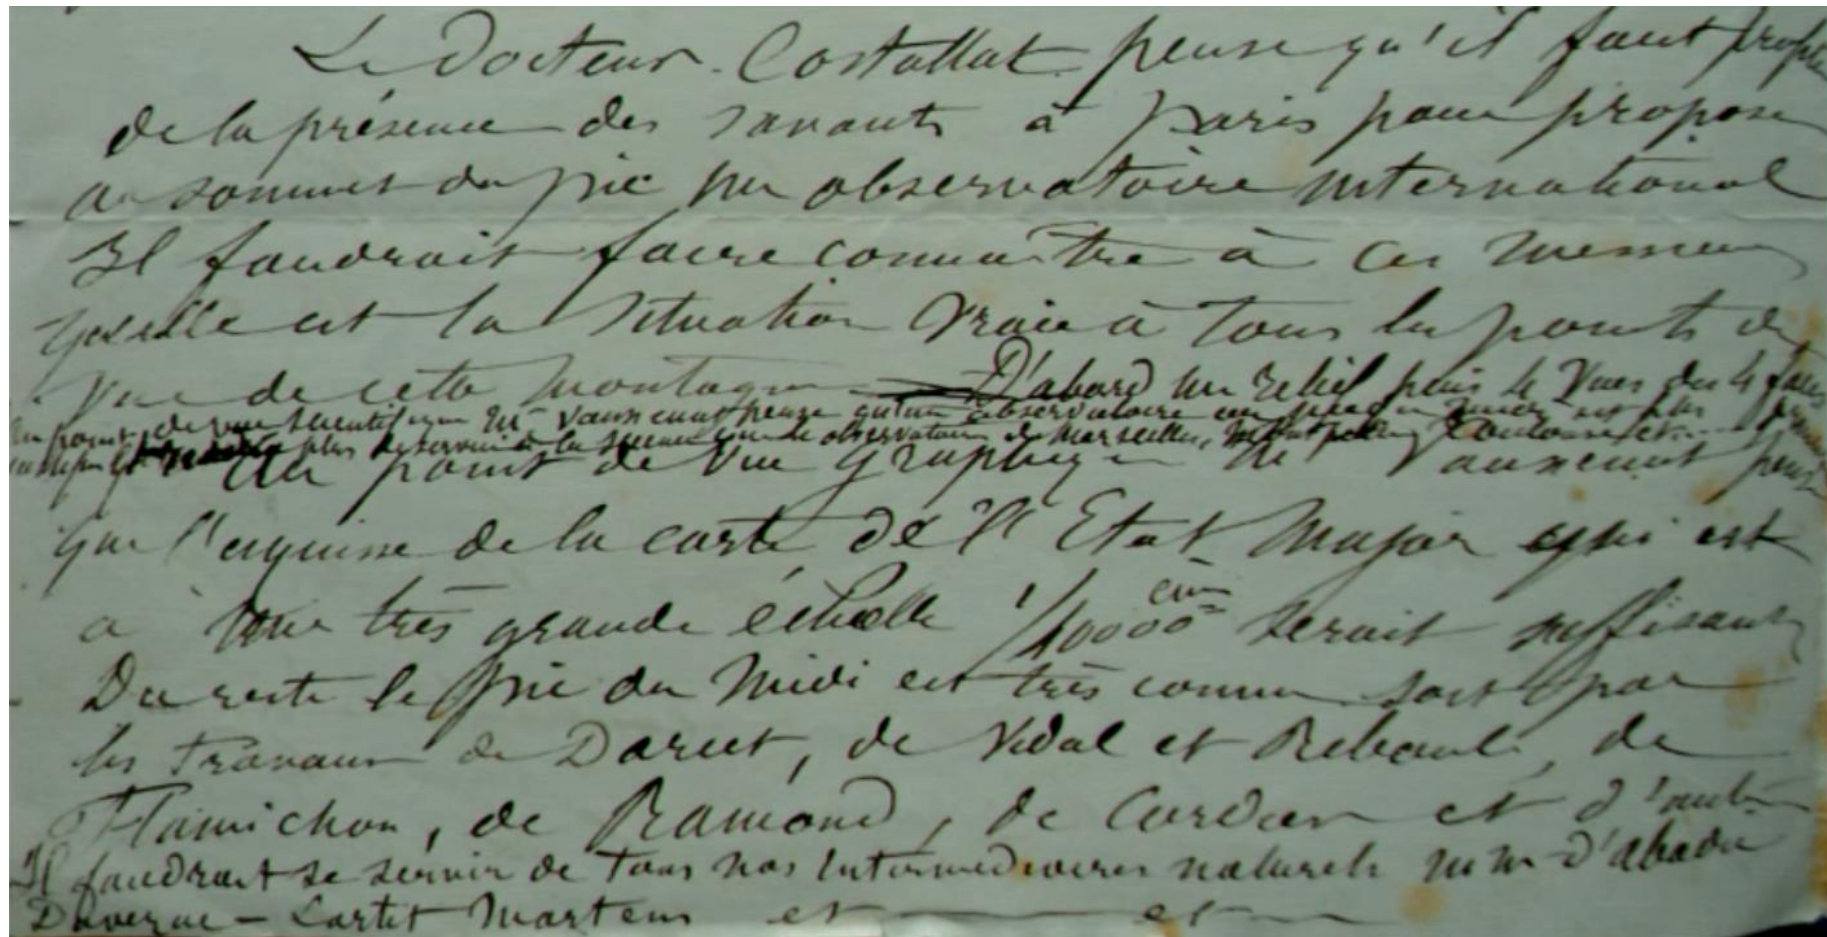 Le Docteur Costallat pense qu'il faut profiter
de la présence des savants à Paris pour proposer
au sommet du pic un observatoire international
Il faudrait faire connaitre à ces messieurs
quelle est la situation vraie à tous les points de
vue de cette montagne D'abord un relief puis le Vues des 4 faces
au point de vue scientifique Mr Vaussenat pense qu'un observatoire au pic du Midi est plus
plus de service à la science que le observatoire de Marseille, Montpellier, Toulouse et
Au point de vue graphique Mr Vaussenat pense
que l'esquisse de la carte de l'Etat Major qui est
a une très grande échelle 1/40000 serait suffisante
Du reste le pic du Midi est très connu soit par
les travaux de Darcet, de Vidal et Reboul, de
Flamichon, de Ramond, de Cordier et d'autres
Il faudrait se servir de tous nos intermédiaires naturels MM d'abadie
Davezac – Lartet Martens et et